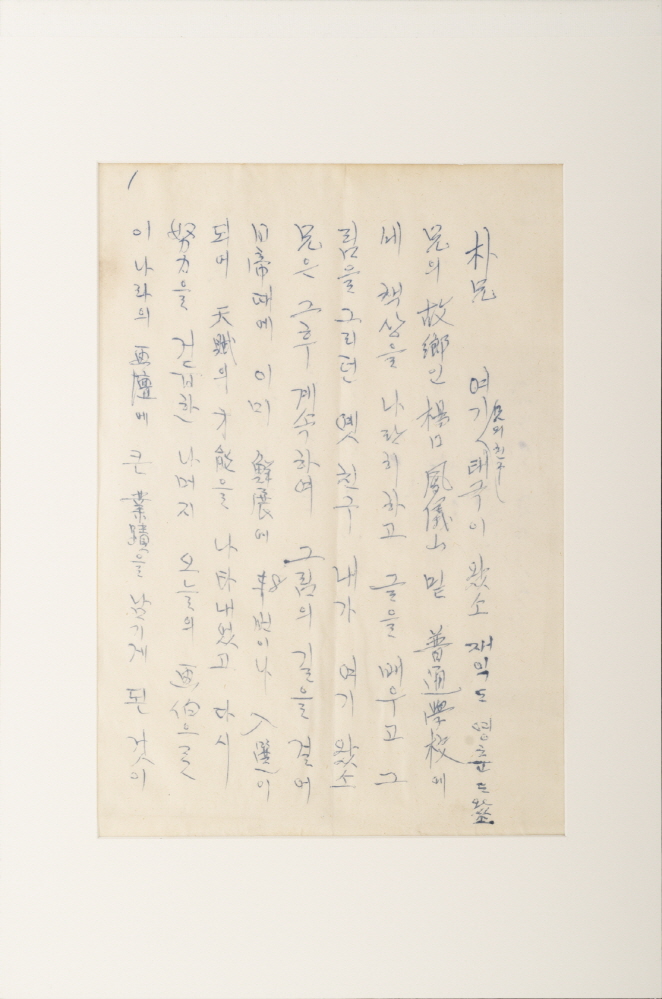 1
朴兄 여기 兄의 친구 태국이 왔소 재익도 영춘도 왔소
兄의 故鄕인 楊口 風儀山 밑 普通學校에
세 책상을 나란히 하고 글을 배우고 그
림을 그리던 옛 친구 내가 여기 왔소
兄은 그후 계속하여 그림의 길을 걸어
日帝때에 이미 鮮展에 8번이나 入選이
되어 天賦의 才能을 나타내었고 다시
努力을 거듭한 나머지 오늘의 画伯으로
이 나라의 画壇에 큰 業蹟을 남기게 된 것이